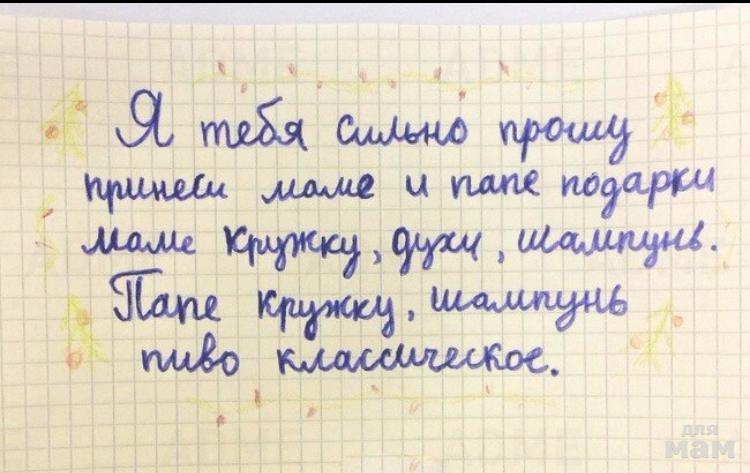 Я тебя сильно прошу
принеси маме и папе подарки
маме кружку, духи, шампунь.
Папе кружку, шампунь
пиво классическое.
для
мам